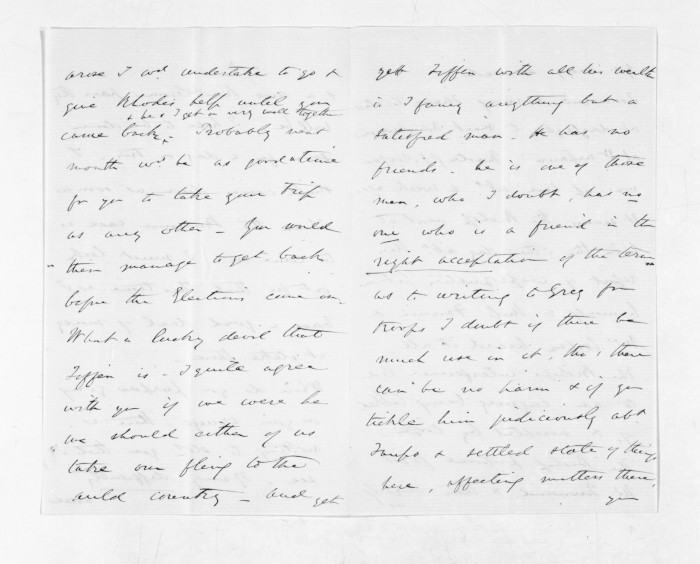 arose I wod undertake to go &
give Rhodes help until you
& he & I get on very well together
came back. Probably next
month wd be as good a time
for you to take your trip
as any other – You would
then manage to get back
before the Elections come on.
What a lucky devil that
Tiffen is. I quite agree
with you if we were he
we should either of us
take our fling to the
auld country – and yet
yet Tiffen with all his wealth
is I fancy anything but a
satisfied man. He has no
friends. he is one of those
men, who I doubt, has no
one who is a friend in the
right acceptation of the term
as to writing to Grey for
troops I doubt if there be
much use in it, tho' there
can be no harm & if you
tickle him judiciously abt
Taupo & settled state of things
here, affecting matters there,
you